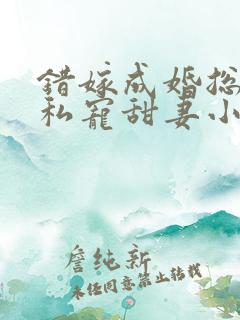 错嫁成婚总
私宠甜妻小
詹纯新
未经同意禁止转载